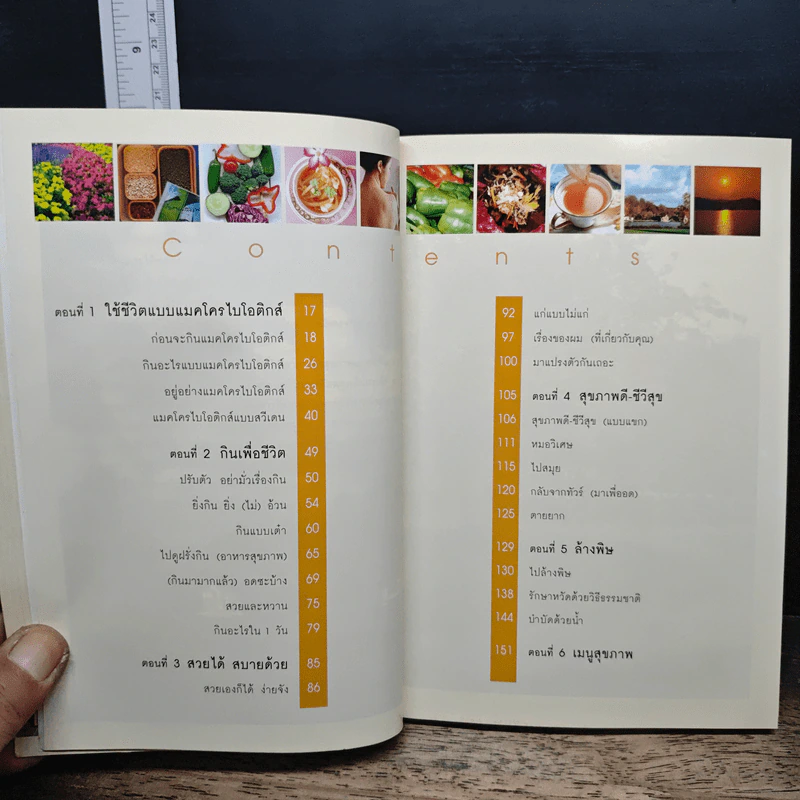 9
24
23
22
21
Contents
ตอนที่ 1 ใช้ชีวิตแบบแมคโครไบโอติกส์ 17
ก่อนจะกินแมคโครไบโอติกส์ 18
กินอะไรแบบแมคโครไบโอติกส์ 26
อยู่อย่างแมคโครไบโอติกส์ 33
แมคโครไบโอติกส์แบบสวีเดน 40
ตอนที่ 2 กินเพื่อชีวิต 49
ปรับตัว อย่ามั่วเรื่องกิน 50
ยิ่งกิน ยิ่ง (ไม่) อ้วน 54
กินแบบเต๋า 60
ไปดูฝรั่งกิน (อาหารสุขภาพ) 65
(กินมามากแล้ว) อดซะบ้าง 69
สวยและหวาน 75
กินอะไรใน 1 วัน 79
ตอนที่ 3 สวยได้ สบายด้วย 85
สวยเองก็ได้ ง่ายจัง 86
92 แก่แบบไม่แก่
97 เรื่องของผม (ที่เกี่ยวกับคุณ)
100 มาแปรงตัวกันเถอะ
105 ตอนที่ 4 สุขภาพดี-ชีวีสุข
106 สุขภาพดี-ชีวีสุข (แบบแขก)
111 หมอวิเศษ
115 ไปสมุย
120 กลับจากทัวร์ (มาเพื่ออด)
125 ตายยาก
129 ตอนที่ 5 ล้างพิษ
130 ไปล้างพิษ
138 รักษาหวัดด้วยวิธีธรรมชาติ
144 บำบัดด้วยน้ำ
151 ตอนที่ 6 เมนูสุขภาพ